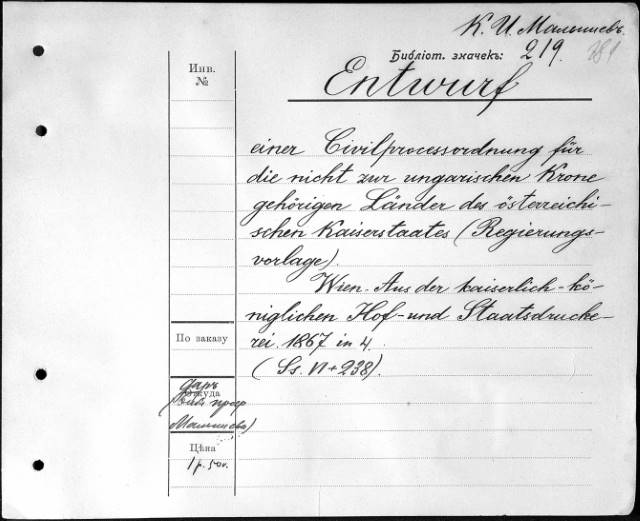 К. И. Малышевъ.
Библіот. значекъ: 219.
Инв.
№
Entwurf
einer Civilprocessordnung für
die nicht zur ungarischen Krone
gehörigen Länder des österreichi-
schen Kaiserstaates (Regierungs-
vorlage).
Wien. Aus der kaiserlich-kö-
niglichen Hof- und Staatsdrucke-
rei. 1867 in 4.
(Ss. VI + 238).
По заказу
даръ
Откуда
проф
Малышева)
Цѣна
1 р. 50 к.